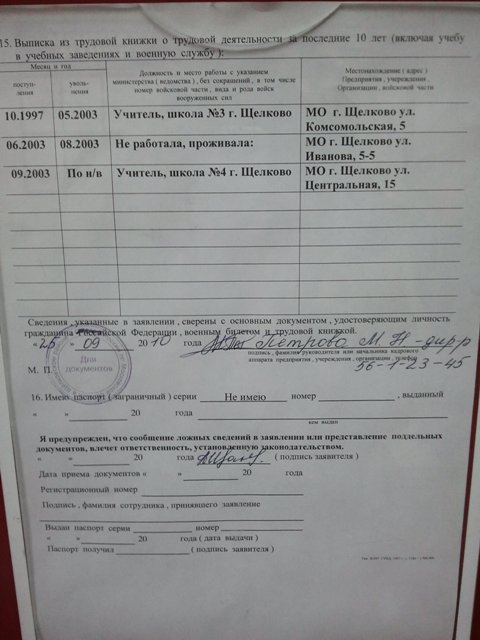 15. Выписка из трудовой книжки о трудовой деятельности за последние 10 лет (включая учебу
в учебных заведениях и военную службу):
Месяц и год
поступ-
ления
уволь-
нения
Должность и место работы с указанием
министерства (ведомства), без сокращений, в том числе
номер войсковой части, вида и рода войск
вооруженных сил
Местонахождение (адрес)
Предприятия, учреждения,
Организации, войсковой части
10.1997 05.2003 Учитель, школа №3 г. Щелково МО г. Щелково ул.
Комсомольская, 5
06.2003 08.2003 Не работала, проживала: МО г. Щелково ул.
Иванова, 5-5
09.2003 По н/в Учитель, школа №4 г. Щелково МО г. Щелково ул.
Центральная, 15
Сведения, указанные в заявлении, сверены с основным документом, удостоверяющим личность
гражданина Российской Федерации, военным билетом и трудовой книжкой.
« 25 » 09 2010 года Петрова М Н - дир
подпись, фамилия руководителя или начальника кадрового
аппарата предприятия, учреждения, организации, телефон
56-1-23-45
М. П.
Для
документов
16. Имею паспорт (заграничный) серии Не имею номер , выданный
« » 20 года
кем выдан
Я предупрежден, что сообщение ложных сведений в заявлении или представление поддельных
документов, влечет ответственность, установленную законодательством.
« » 20 года (подпись заявителя)
Дата приема документов « » 20 года
Регистрационный номер
Подпись, фамилия сотрудника, принявшего заявление
Выдан паспорт серии номер
« » 20 года (дата выдачи)
Паспорт получил (подпись заявителя)